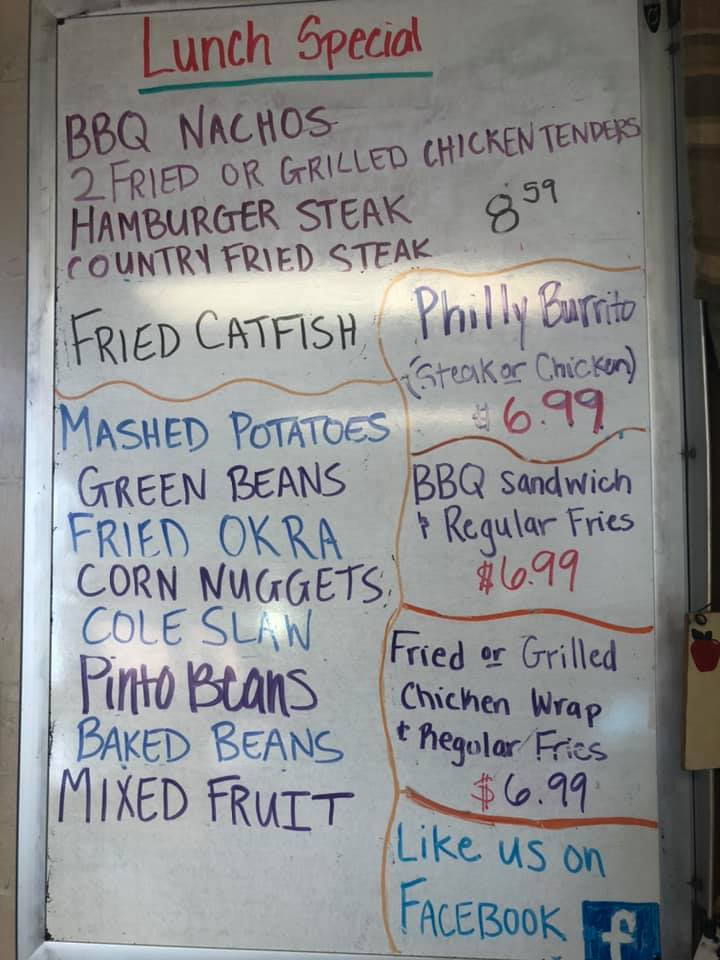 Lunch Special
BBQ NACHOS
2 FRIED OR GRILLED CHICKEN TENDERS
HAMBURGER STEAK 8.59
COUNTRY FRIED STEAK
FRIED CATFISH
MASHED POTATOES
GREEN BEANS
FRIED OKRA
CORN NUGGETS
COLE SLAW
Pinto Beans
BAKED BEANS
MIXED FRUIT
Philly Burrito
(Steak or Chicken)
$6.99
BBQ Sandwich
& Regular Fries
$6.99
Fried or Grilled
Chicken Wrap
& Regular Fries
$6.99
Like us on
FACEBOOK f